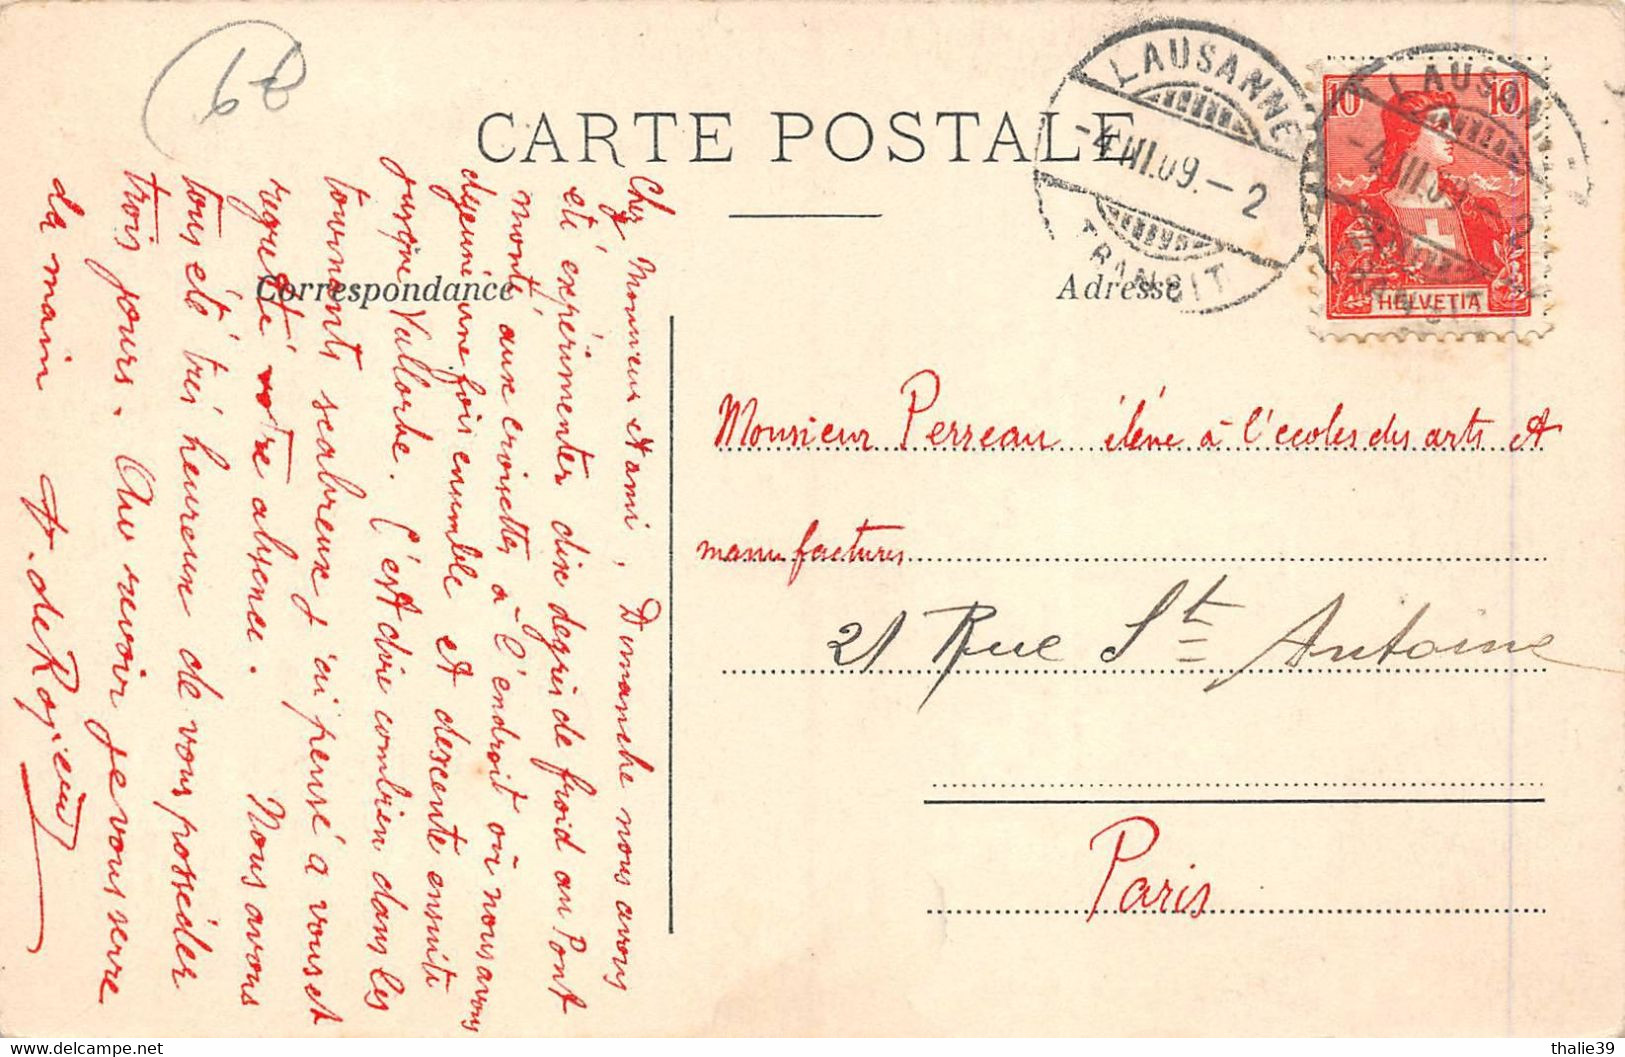 68
CARTE POSTALE
LAUSANNE
-4.III.09.-2
TRANSIT
LAUSANNE
-4.III.09.-2
TRANSIT
10 10
HELVETIA
Correspondance
Adresse
Cher Monsieur et ami, Dimanche nous avons
été expérimenter dix degrés de froid au Pont
monté aux croisettes à l'endroit où nous avons
dejeuné une fois ensemble et descente ensuite
jusqu'à Vallorbe. C'est dire combien dans les
tournants scabreux j'ai pensé a vous et
regretté votre absence. Nous avons
tous été trés heureux de vous posséder
trois jours. Au revoir je vous serre
la main
Monsieur Perreau éléve à l'écoles des arts et
manufactures
21 Rue St Antoine
Paris
Find us on delcampe.net
thalie39